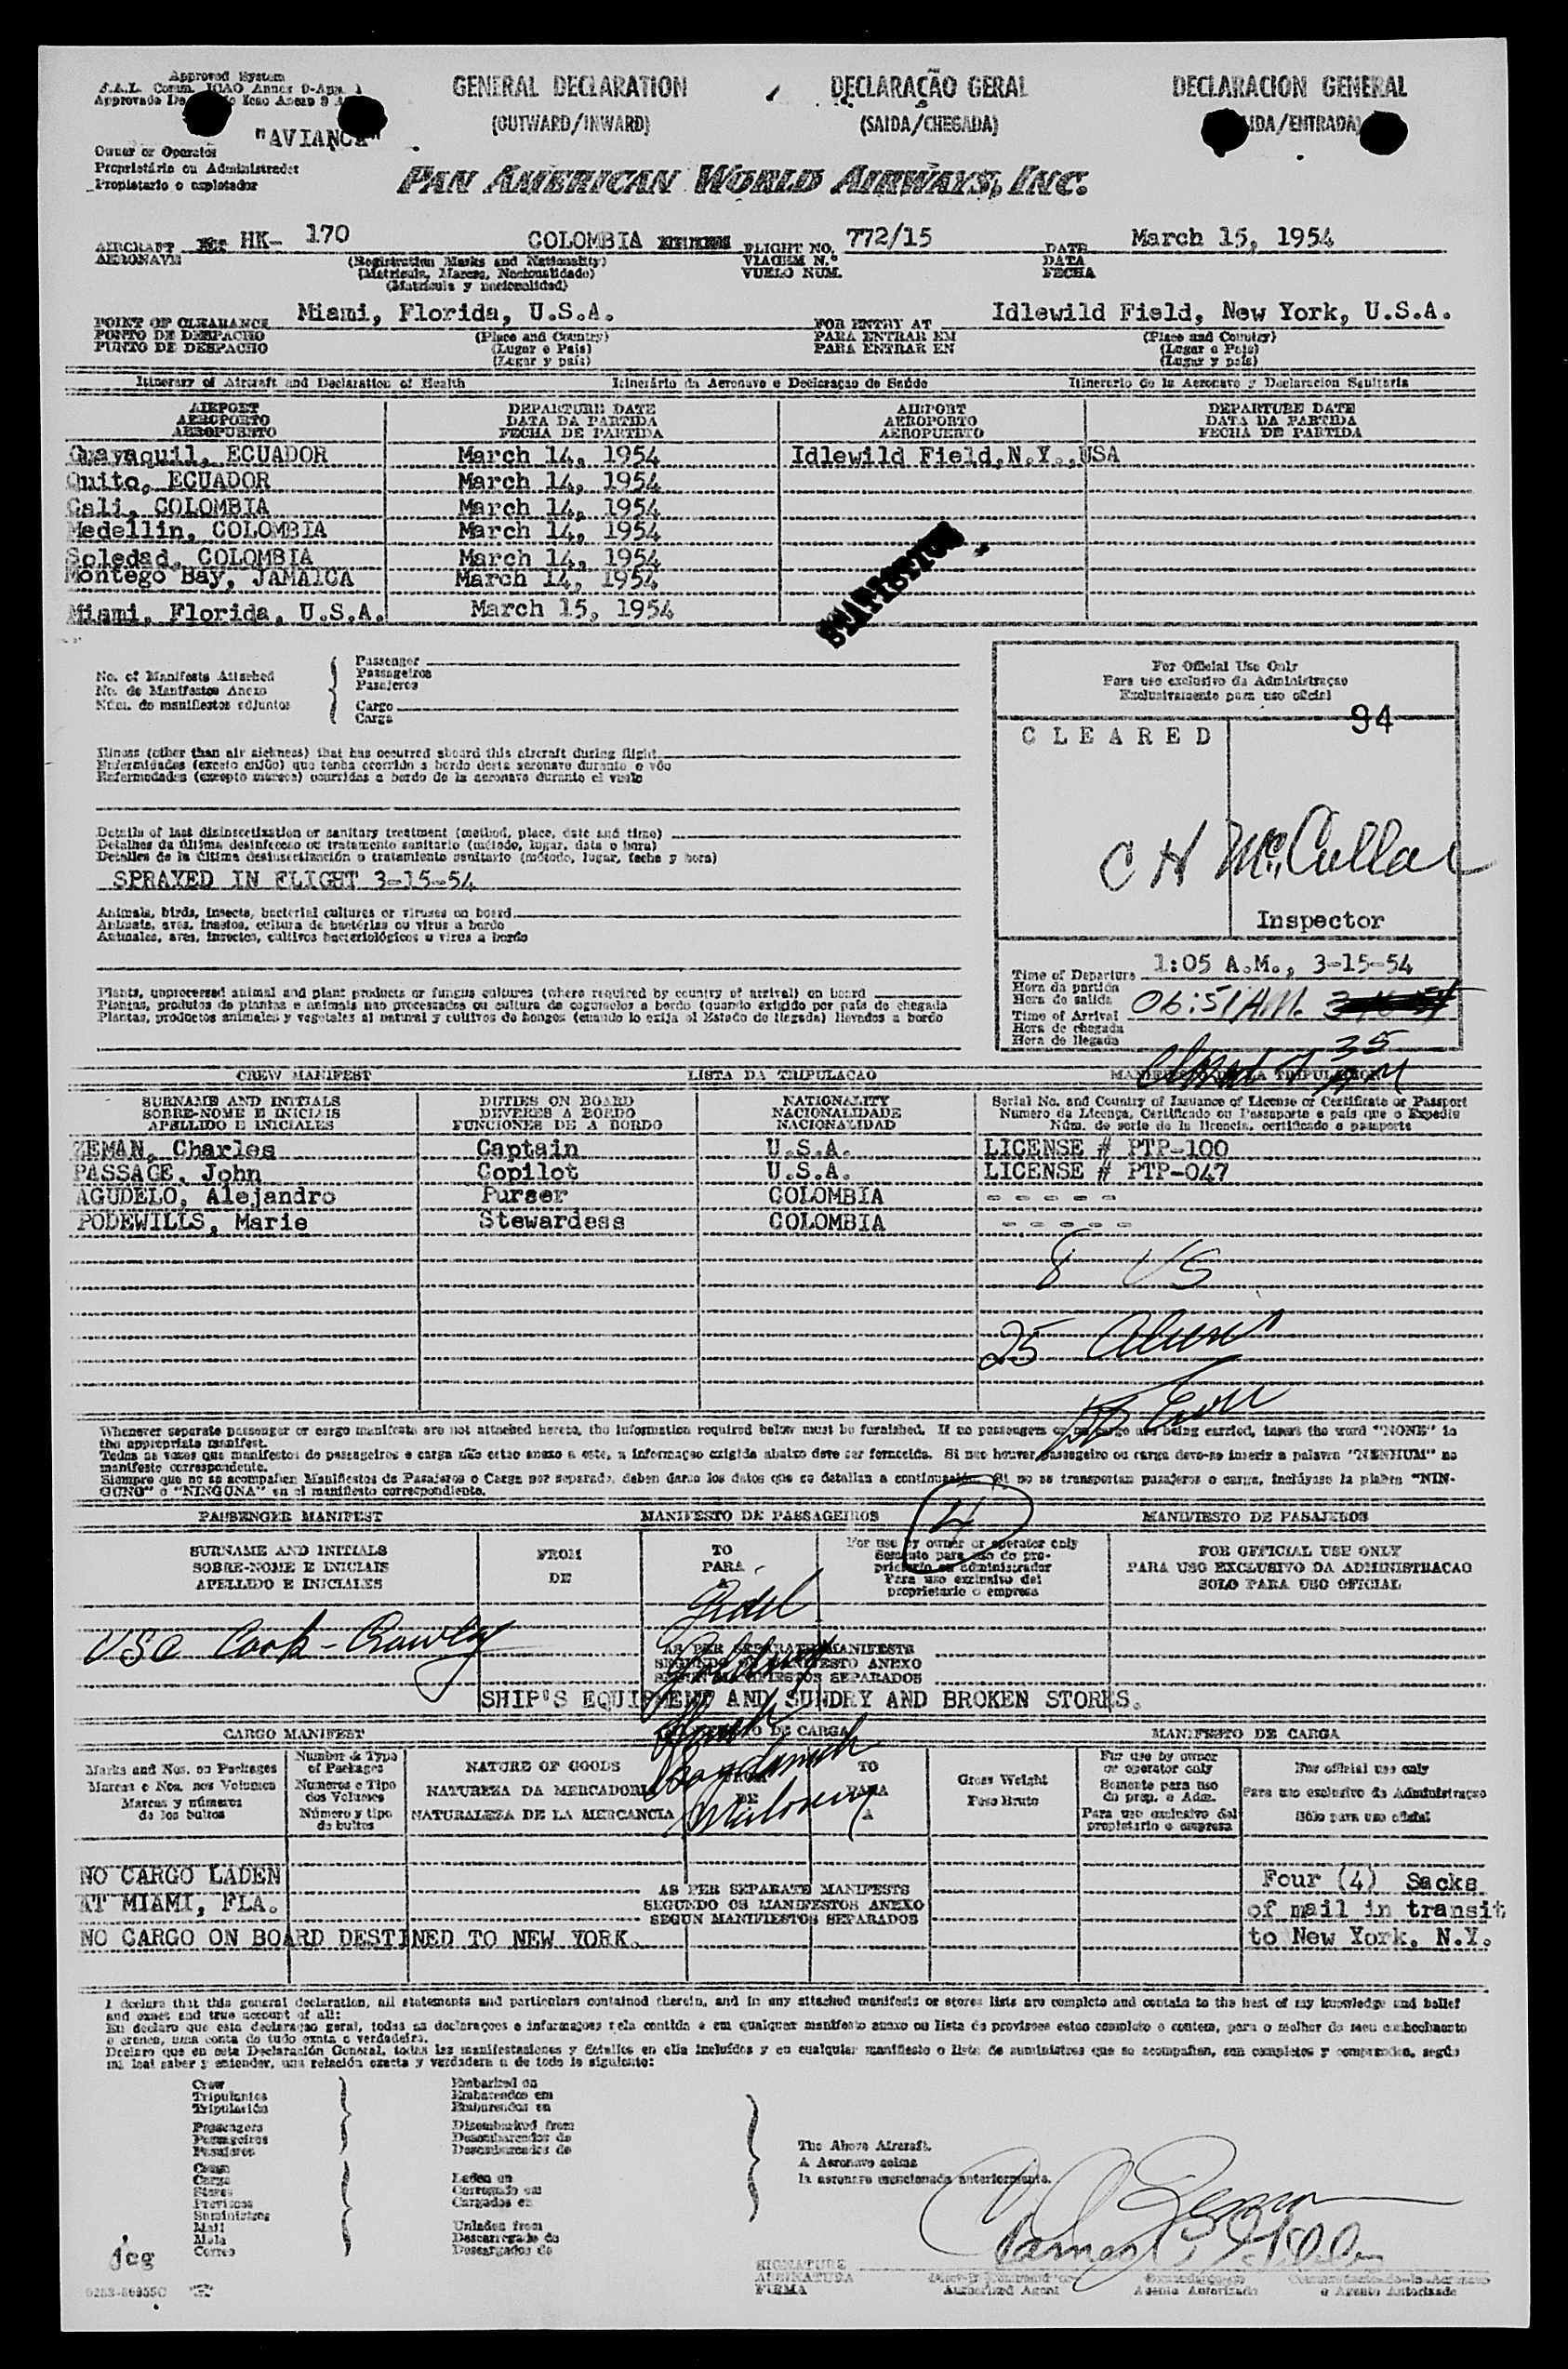 Approved System
F.A.L. Comm. ICAO Annex 9-App. 1
"AVIANCA"
Owner or Operator
Proprietário ou Administrador
Propietario o explotador
GENERAL DECLARATION
(OUTWARD/INWARD)
DECLARAÇÃO GERAL
(SAIDA/CHEGADA)
DECLARACION GENERAL
IDA/ENTRADA)
PAN AMERICAN WORLD AIRWAYS, INC.
AIRCRAFT HK- 170 COLOMBIA FLIGHT NO. 772/15 DATE March 15, 1954
AERONAVE (Registration Marks and Nationality) VIAGEM N.º DATA
(Matricula, Marcas, Nacionalidade) VUELO NUM. FECHA
(Matrícula y nacionalidad)
POINT OF CLEARANCE Miami, Florida, U.S.A. FOR ENTRY AT Idlewild Field, New York, U.S.A.
PONTO DE DESPACHO (Place and Country) PARA ENTRAR EM (Place and Country)
PUNTO DE DESPACHO (Lugar e País) PARA ENTRAR EN (Lugar e País)
(Lugar y país) (Lugar y país)
Itinerary of Aircraft and Declaration of Health Itinerário da Aeronave e Declaraçao de Saúde Itinerario de la Aeronave y Declaracion Sanitaria
AIRPORT DEPARTURE DATE AIRPORT DEPARTURE DATE
AEROPORTO DATA DA PARTIDA AEROPORTO DATA DA PARTIDA
AEROPUERTO FECHA DE PARTIDA AEROPUERTO FECHA DE PARTIDA
Guayaquil, ECUADOR March 14, 1954 Idlewild Field,N.Y.,USA
Quito, ECUADOR March 14, 1954
Cali, COLOMBIA March 14, 1954
Medellin, COLOMBIA March 14, 1954
Soledad, COLOMBIA March 14, 1954
Montego Bay, JAMAICA March 14, 1954
Miami, Florida, U.S.A. March 15, 1954
STATISTICS
No. of Manifests Attached
No. de Manifestos Anexo
Núm. de manifiestos adjuntos
Passenger
Passageiros
Pasajeros
Cargo
Carga
For Official Use Only
Para uso exclusivo da Administraçao
Exclusivamente para uso oficial
94
CLEARED
C H McCullar
Inspector
Time of Departure 1:05 A.M., 3-15-54
Hora da partida
Hora de salida
Time of Arrival 06:51 A.M.
Hora de chegada
Hora de llegada
Illness (other than air sickness) that has occurred aboard this aircraft during flight
Enfermidades (exceto enjôo) que tenha ocorrido a bordo desta aeronave durante o vôo
Enfermedades (excepto mareos) ocurridas a bordo de la aeronave durante el vuelo
Details of last disinsectization or sanitary treatment (method, place, date and time)
Detalhes da última desinfeccao ou tratamento sanitario (método, lugar, data o hora)
Detalles de la última desinsectización o tratamiento sanitario (método, lugar, fecha y hora)
SPRAYED IN FLIGHT 3-15-54
Animals, birds, insects, bacterial cultures or viruses on board
Animais, aves, insetos, cultura de bactérias ou virus a bordo
Animales, aves, insectos, cultivos bacteriológicos o virus a bordo
Plants, unprocessed animal and plant products or fungus cultures (where required by country of arrival) on board
Plantas, produtos de plantas e animais nao processados ou cultura de cogumelos a bordo (quando exigido por país de chegada
Plantas, productos animales y vegetales al natural y cultivos de hongos (cuando lo exija el Estado de llegada) llevados a bordo
CREW MANIFEST LISTA DA TRIPULACAO
SURNAME AND INITIALS DUTIES ON BOARD NATIONALITY Serial No. and Country of Issuance of License or Certificate or Passport
SOBRE-NOME E INICIAIS DEVERES A BORDO NACIONALIDADE Numero da Licença, Certificado ou Passaporte e país que o Expediu
APELLIDO E INICIALES FUNCIONES DE A BORDO NACIONALIDAD Núm. de serie de la licencia, certificado o pasaporte
ZEMAN, Charles Captain U.S.A. LICENSE # PTP-100
PASSAGE, John Copilot U.S.A. LICENSE # PTP-047
AGUDELO, Alejandro Purser COLOMBIA - - - - -
PODEWILLS, Marie Stewardess COLOMBIA - - - - -
8 US
25 Aliens
Whenever separate passenger or cargo manifests are not attached hereto, the information required below must be furnished. If no passengers or no cargo are being carried, insert the word "NONE" in
the appropriate manifest.
Todas as vezes que manifestos de passageiros e carga não estao anexo a este, a informaçao exigida abaixo deve ser fornecida. Si nao houver passageiro ou carga deve-se inserir a palavra "NENHUM" no
manifesto correspondente.
Siempre que no se acompañen Manifiestos de Pasajeros o Carga por separado, deben darse los datos que se detallan a continuación. Si no se transportan pasajeros o carga, inclúyase la plabra "NIN-
GUNO" o "NINGUNA" en el manifiesto correspondiente.
PASSENGER MANIFEST MANIFESTO DE PASSAGEIROS MANIFIESTO DE PASAJEROS
4
SURNAME AND INITIALS FROM TO For use by owner or operator only FOR OFFICIAL USE ONLY
SOBRE-NOME E INICIAIS DE PARA Somente para uso do pro- PARA USO EXCLUSIVO DA ADMINISTRACAO
APELLIDO E INICIALES A prietario ou administrador SOLO PARA USO OFICIAL
Para uso exclusivo del
proprietario o empresa
AS PER SEPARATE MANIFESTS
SEGUNDO OS MANIFESTO ANEXO
SEGUN MANIFIESTOS SEPARADOS
SHIP'S EQUIPMENT AND SUNDRY AND BROKEN STORES.
CARGO MANIFEST MANIFESTO DE CARGA MANIFIESTO DE CARGA
Marks and Nos. on Packages
Marcas e Nos. nos Volumes
Marcas y números
de los bultos
Number & Type
of Packages
Numeros e Tipo
dos Volumes
Número y tipo
de bultos
NATURE OF GOODS
NATUREZA DA MERCADORIA
NATURALEZA DE LA MERCANCIA
FROM
DE
TO
PARA
A
Gross Weight
Peso Bruto
For use by owner
or operator only
Somente para uso
do prop. e Adm.
Para uso exclusivo del
propietario o empresa
For official use only
Para uso exclusivo da Administraçao
Sólo para uso oficial
NO CARGO LADEN
AT MIAMI, FLA.
NO CARGO ON BOARD DESTINED TO NEW YORK.
AS PER SEPARATE MANIFESTS
SEGUNDO OS MANIFESTOS ANEXO
SEGUN MANIFIESTOS SEPARADOS
Four (4) Sacks
of mail in transit
to New York, N.Y.
I declare that this general declaration, all statements and particulars contained therein, and in any attached manifests or stores lists are complete and contain to the best of my knowledge and belief
and exact and true account of all:
Crew
Tripulantes
Tripulación
Passengers
Passageiros
Pasajeros
Cargo
Carga
Stores
Provisoes
Suministros
Mail
Mala
Correo
Embarked on
Embarcados em
Embarcados en
Disembarked from
Desembarcados de
Desembarcados de
Laden on
Carregado em
Cargados en
Unladen from
Descarregado do
Descargados de
The Above Aircraft.
A Aeronave acima
la aeronave mencionada anteriormente.
jcg
SIGNATURE
ASSINATURA
FIRMA
Authorized Agent
Agente Autorizado
o Agente Autorizado